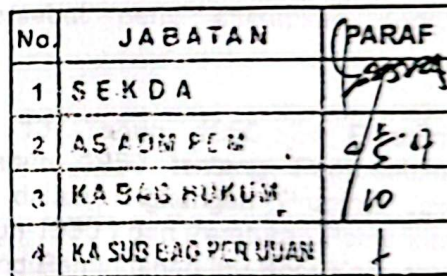 No. JABATAN PARAF
1 SEKDA
2 AS ADM PEM
3 KA BAG HUKUM 10
4 KA SUB BAG PER UUAN